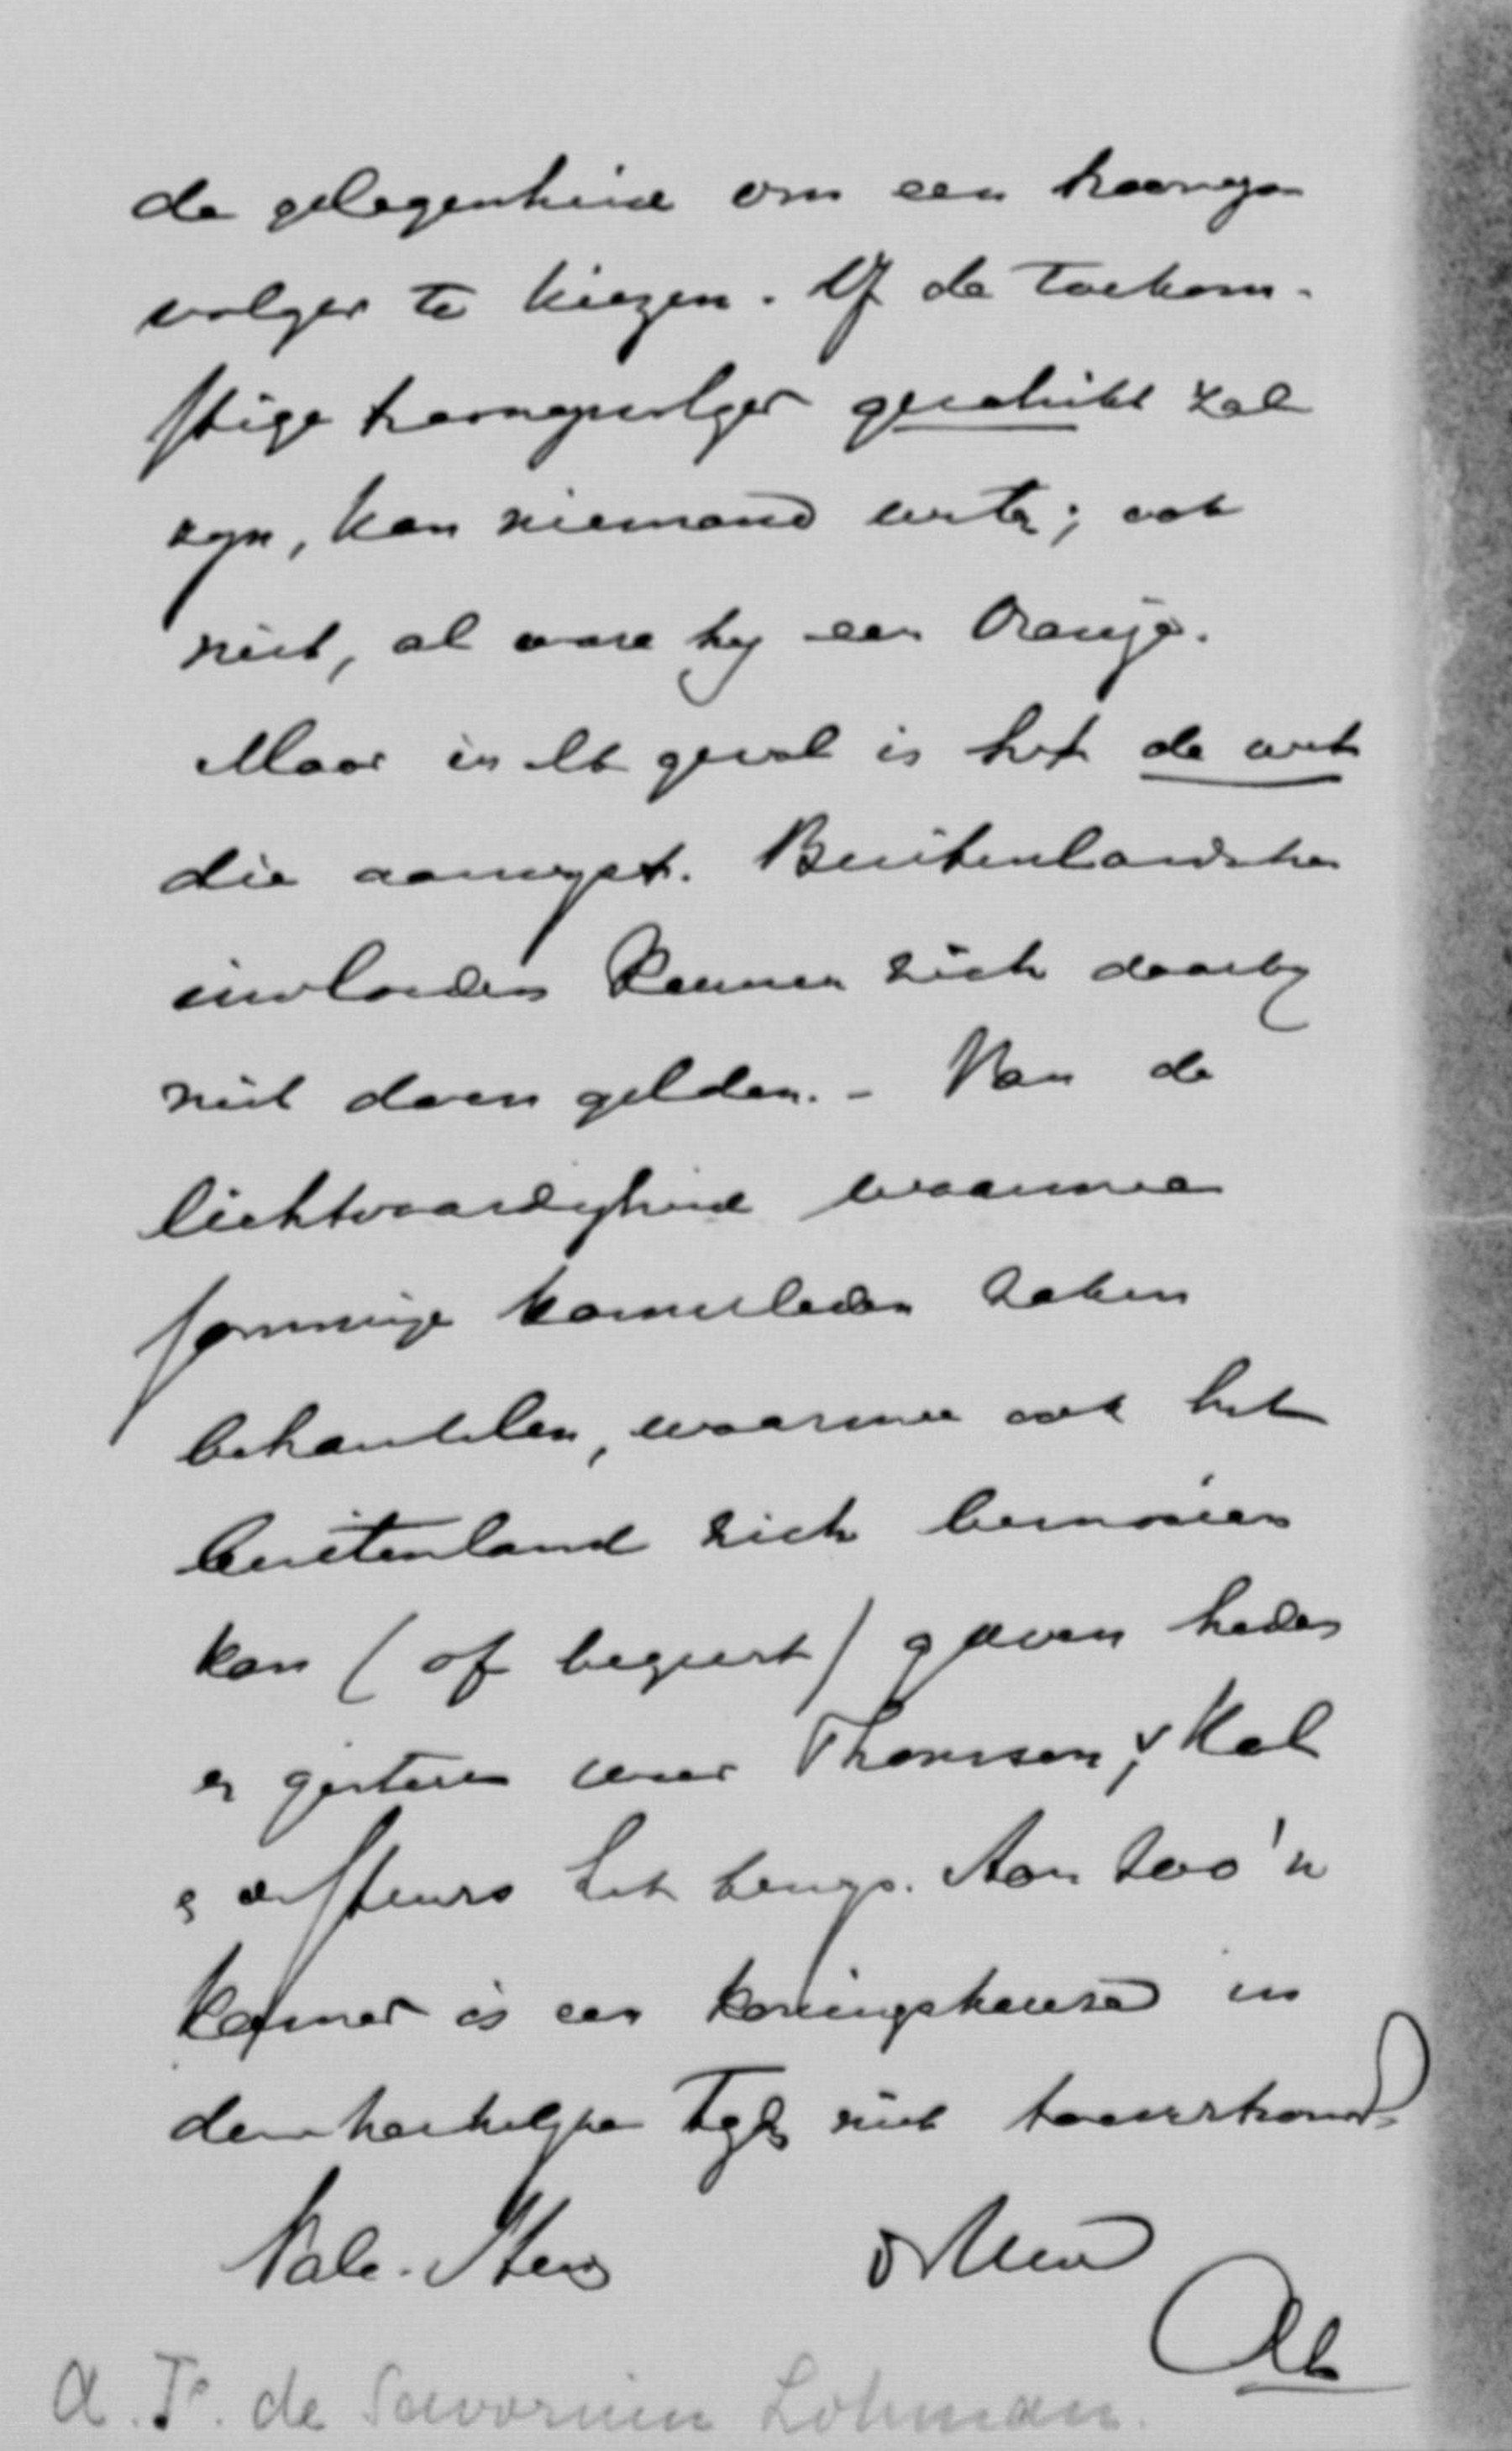 de gelegenheid om een troonop-
volger te kiezen. Of de toekom-
stige troonopvolger geschikt zal
zyn, kan niemand weten; ook
niet, al ware hy een Oranje.
Maar in elk geval is het de wet
die aanwyst. Buitenlandsche
invloeden kunnen zich daarby
niet doen gelden. - Van de
lichtvaardigheid waarmee
sommige kamerleden zaken
behandelen, waarmee ook het
buitenland zich bemoeien
kan (of begeert) gaven heden
en gisteren weer Thomson, v Kol
en de Steurs het bewys. Aan zoo'n
kamer is een koningskeuze in
dem tyds niet toevertrouwd.
Vale.
A. F. de Savornin Lohman.